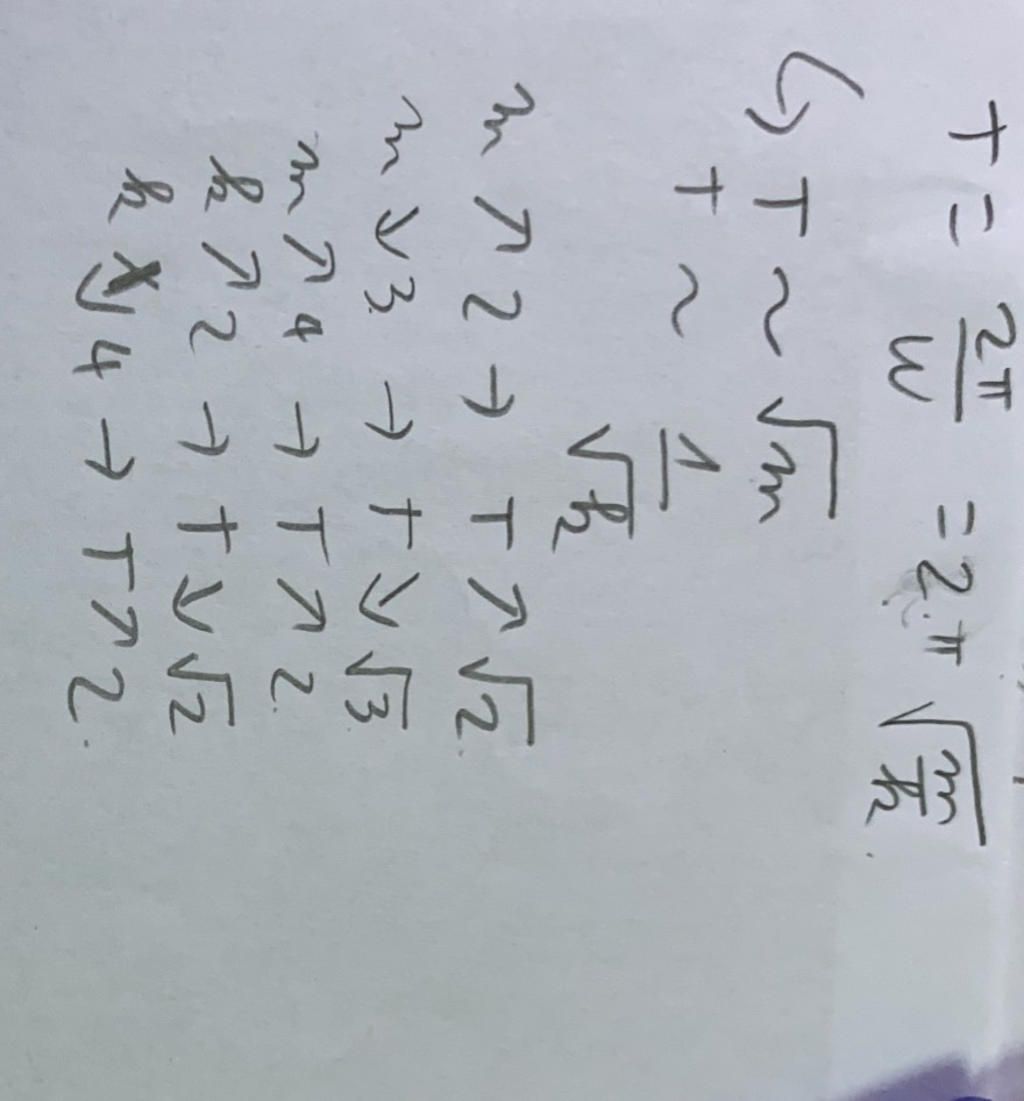 T = 2π/ω = 2π √(m/k).
↳ T ~ √m
T ~ 1/√k
m ↗ 2 → T ↗ √2.
m ↘ 3 → T ↘ √3
m ↗ 4 → T ↗ 2.
k ↗ 2 → T ↘ √2
k ↘ 4 → T ↗ 2.